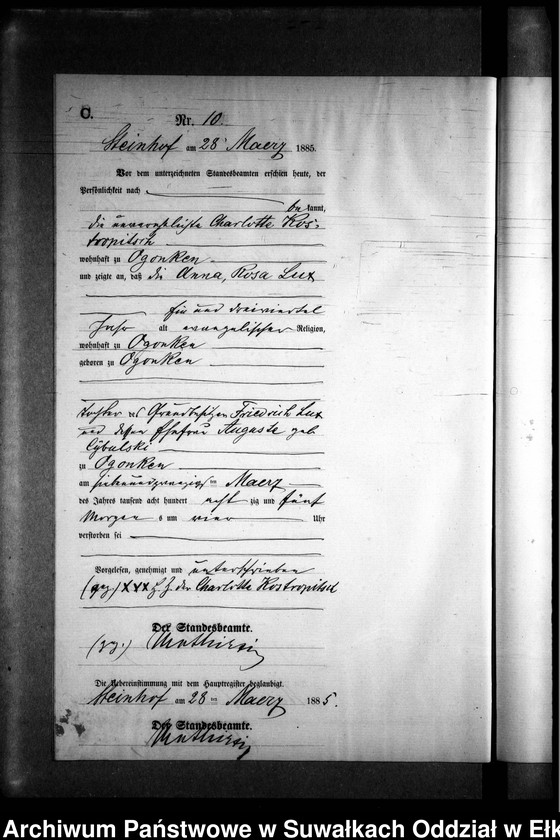 C.
Nr. 10.
Steinhof am 28ten Maerz 1885.
Vor dem unterzeichneten Standesbeamten erschien heute, der
Persönlichkeit nach
be kannt,
die unverehelichte Charlotte Kos-
tropitsch
wohnhaft zu Ogonken
und zeigte an, daß die Anna, Rosa Lux
Ein und dreiviertel
Jahr alt evangelischer Religion,
wohnhaft zu Ogonken
geboren zu Ogonken
Tochter des Grundbesitzers Friedrich Lux
und dessen Ehefrau Auguste geb.
Cybulski
zu Ogonken
am siebenundzwanzigsten Maerz
des Jahres tausend acht hundert acht zig und fünf
Morgens um vier Uhr
verstorben sei
Vorgelesen, genehmigt und unterschrieben
(gez) XXX H. Z. der Charlotte Kostropitsch
Der Standesbeamte.
(gez.)
Die Uebereinstimmung mit dem Hauptregister beglaubigt.
Steinhof am 28ten Maerz 1885.
Der Standesbeamte.
Archiwum Państwowe w Suwałkach Oddział w Ełk